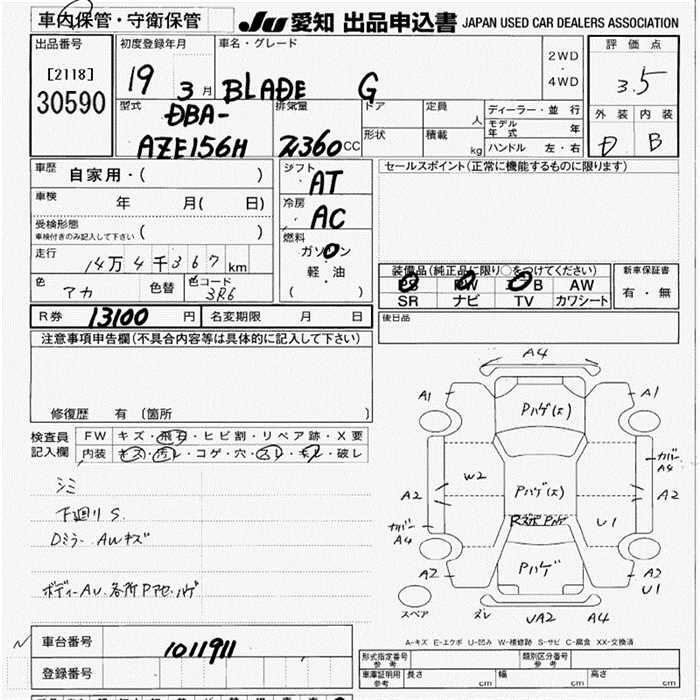 車内保管・守衛保管
JU 愛知 出品申込書 JAPAN USED CAR DEALERS ASSOCIATION
出品番号
[2118]
30590
初度登録年月
19 3月
車名・グレード
BLADE G
2WD
・
4WD
評価点
3.5
外装 内装
D B
型式
DBA-
AZE156H
排気量
2360cc
ドア
形状
定員 人
積載 kg
ディーラー・並行
モデル年式 年
ハンドル 左・右
車歴 自家用・( )
車検 年 月( 日)
受検形態
車検付きのみ記入して下さい ( )
走行 14万4千367km
色 アカ 色替 色コード 3R6
シフト AT
冷房 AC
燃料
ガソリン
軽・油
( )
セールスポイント(正常に機能するものに限ります)
装備品(純正品に限り○をつけてください)
PS PW AB AW
SR ナビ TV カワシート
新車保証書
有・無
R券 13100円 名変期限 月 日
後日品
注意事項申告欄(不具合内容等は具体的に記入して下さい)
修復歴 有 (箇所 )
検査員
記入欄
FW キズ・飛石・ヒビ割・リペア跡・X要
内装 キズ・汚レ・コゲ・穴・スレ・キレ・破レ
シミ
下廻りS.
Dミラー AWキズ
ボディーAU.各所Pアセ.ハゲ
A4
A1 Pハゲ(大) A1
カバー
A4
W2 Pハゲ(大)
A2 A2
Rスポ Pハゲ U1
カバー
A4
A2 Pハゲ A2
U1
スペア ズレ UA2 A4
A-キズ E-エクボ U-凹み W-補修跡 S-サビ C-腐食 XX-交換済
車台番号 1011911
登録番号
形式指定番号
参考
類別区分番号
参考
車庫証明用
参考
長さ cm 幅 cm 高さ cm